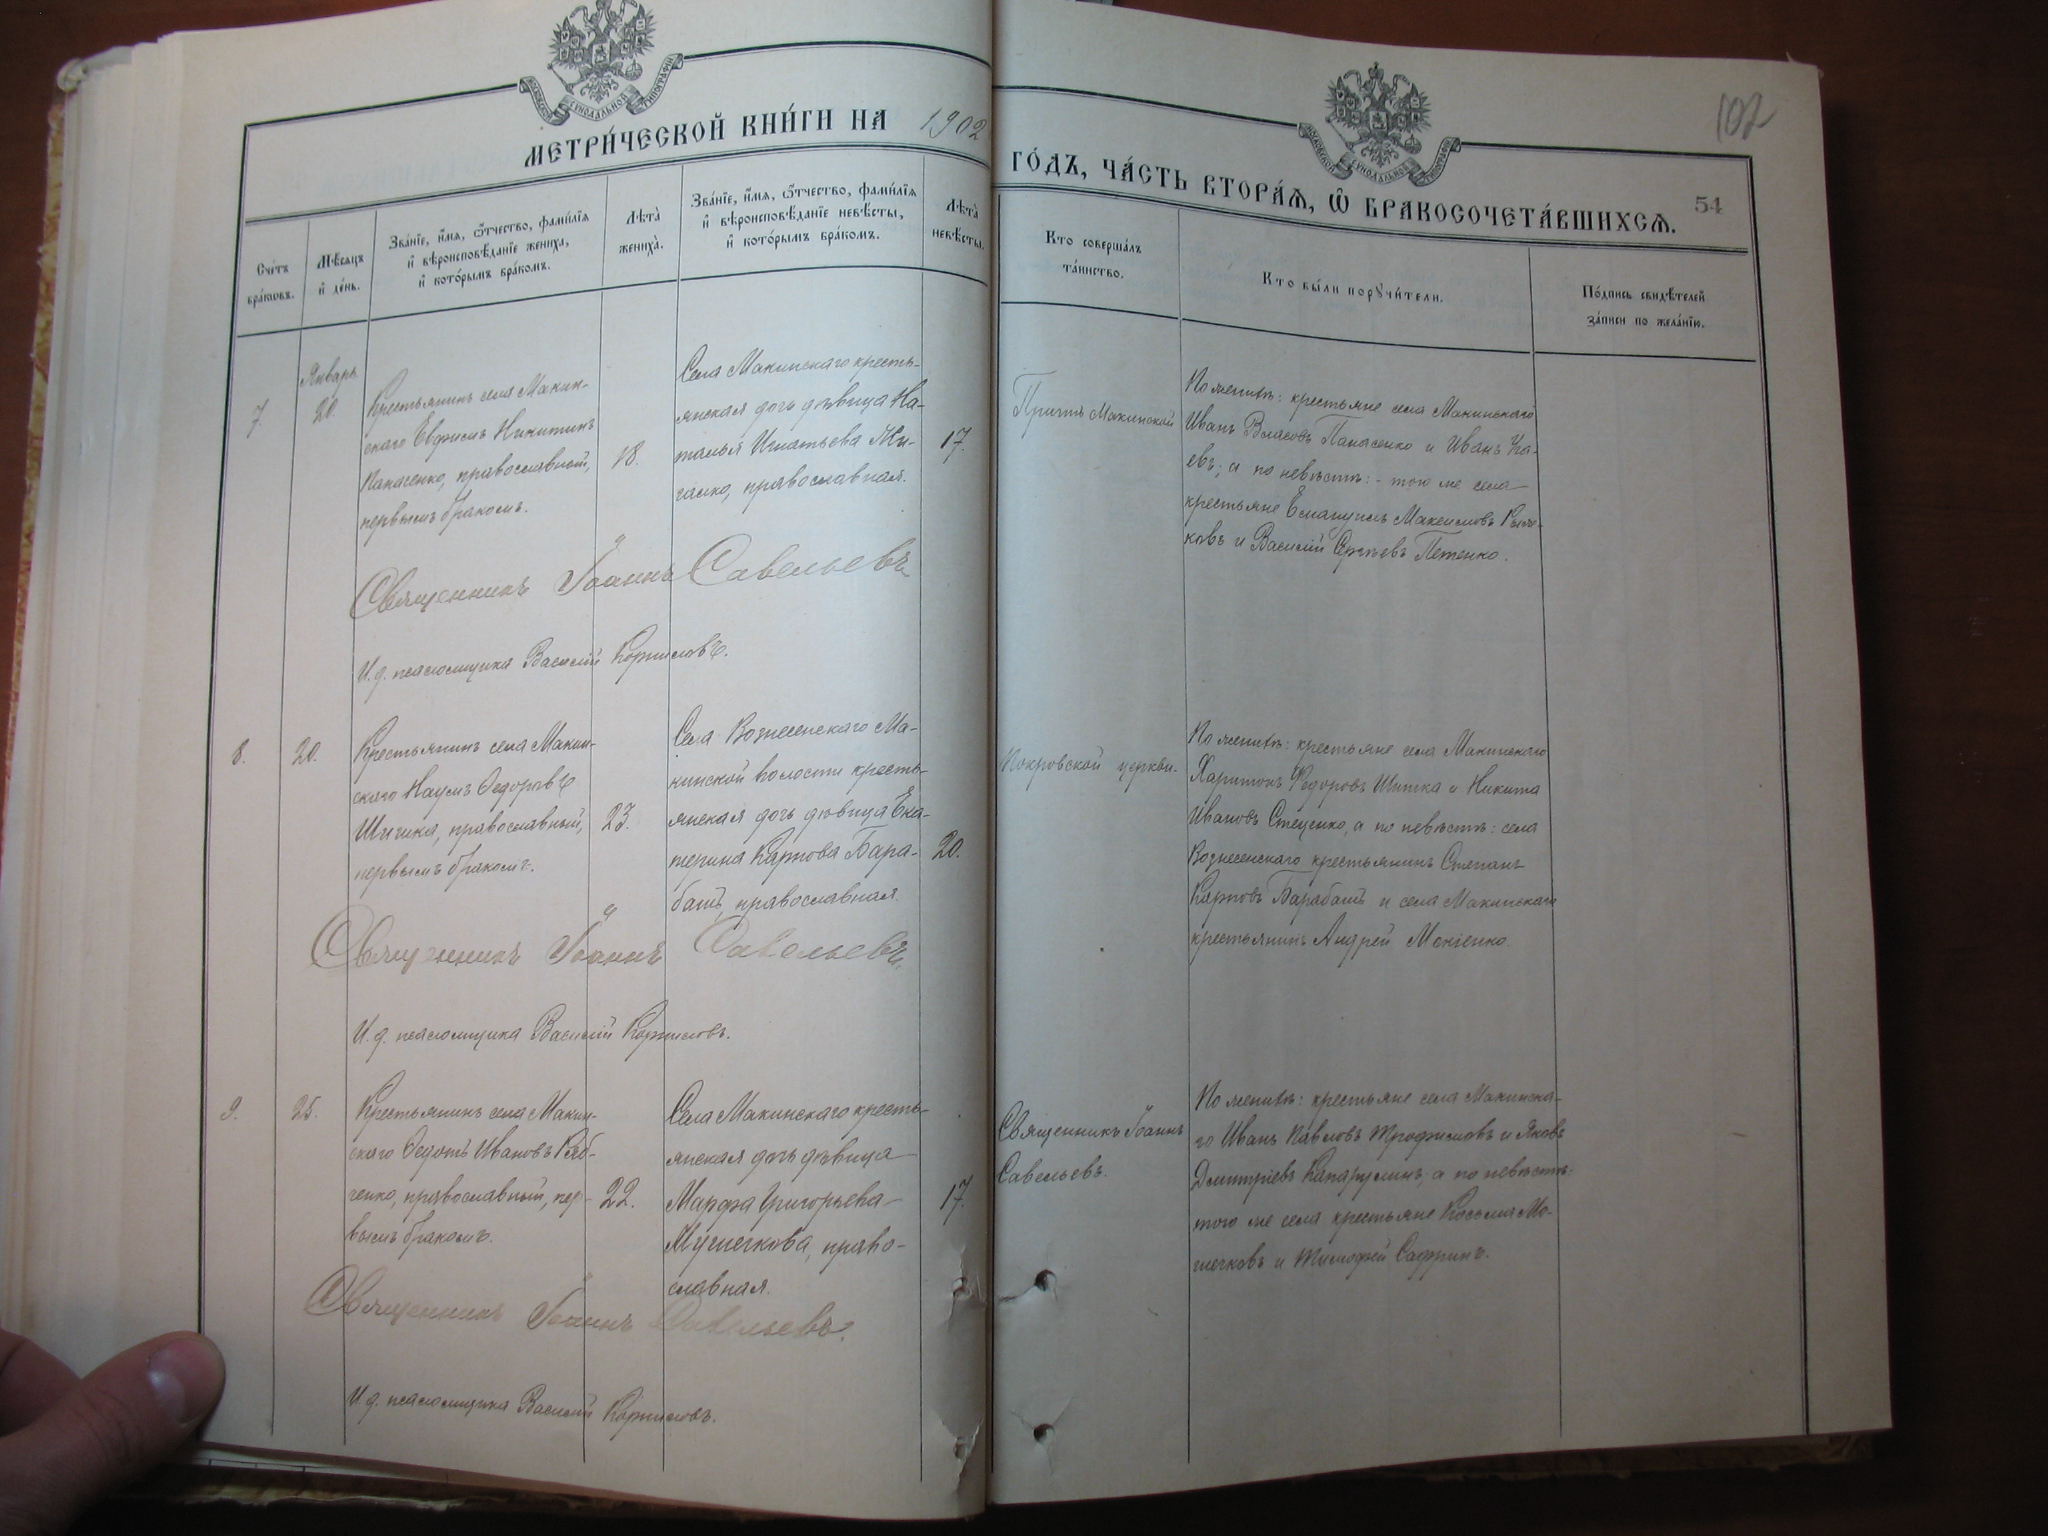 МЕТРИ́ЧЕСКОЙ КНИ́ГИ НА 1902
ГО́ДЪ, ЧА́СТЬ ВТОРА́Ѧ, Ѡ҆ БРАКОСОЧЕТА́ВШИХСѦ.
102
54
Сче́тъ бра́ковъ.
Мѣ́сяцъ и де́нь.
Зва́нїе, и҆́мѧ, ѻ҆́тчество, фами́лїѧ
и҆ вѣроисповѣ́данїе жениха̀,
и҆ кото́рымъ бра́комъ.
Лѣ́та̀
жениха̀.
Зва́нїе, и҆́мѧ, ѻ҆́тчество, фами́лїѧ
и҆ вѣроисповѣ́данїе невѣ́сты,
и҆ кото́рымъ бра́комъ.
Лѣ́та̀
невѣ́сты.
Кто соверша́лъ
та́инство.
Кто бы́ли порꙋчи́тели.
По́дпись свидѣ́телей
за́писи по жела́нїю.
7.
Январь
20.
Крестьянинъ села Макин-
скаго Евфимъ Никитинъ
Панасенко, православный,
первымъ бракомъ.
18.
Села Макинскаго кресть-
янская дочь дѣвица На-
талья Игнатьева
православная.
17.
Причтъ Макинской
По женихѣ: крестьяне села Макинскаго
Иванъ Власовъ Панасенко и Иванъ
а по невѣстѣ: - того же села
крестьяне Емануилъ Максимовъ
и Василій Сергѣевъ Петенко.
Священникъ Іоаннъ Савельевъ
И. д. псаломщика Василій Корниловъ.
8.
20.
Крестьянинъ села Макин-
скаго Наумъ Ѳедоровъ
православный,
первымъ бракомъ.
23.
Села Вознесенскаго Ма-
кинской волости кресть-
янская дочь дѣвица Ека-
терина Карпова Бара-
башъ, православная.
20.
Покровской церкви.
По женихѣ: крестьяне села Макинскаго
Харитонъ Ѳедоровъ и Никита
Ивановъ Стеценко, а по невѣстѣ: села
Вознесенскаго крестьянинъ Степанъ
Карповъ Барабашъ и села Макинскаго
крестьянинъ Андрей Мокіенко.
Священникъ Іоаннъ Савельевъ.
И. д. псаломщика Василій Корниловъ.
9.
25.
Крестьянинъ села Макин-
скаго Ѳедотъ Ивановъ Ряб-
ченко, православный, пер-
вымъ бракомъ.
22.
Села Макинскаго кресть-
янская дочь дѣвица
Марфа Григорьева
право-
славная.
17.
Священникъ Іоаннъ
Савельевъ.
По женихѣ: крестьяне села Макинска-
го Иванъ Павловъ Трофимовъ и Яковъ
Дмитріевъ а по невѣстѣ:
того же села крестьяне Косьма
и Тимофей Сафринъ.
Священникъ Іоаннъ Савельевъ.
И. д. псаломщика Василій Корниловъ.